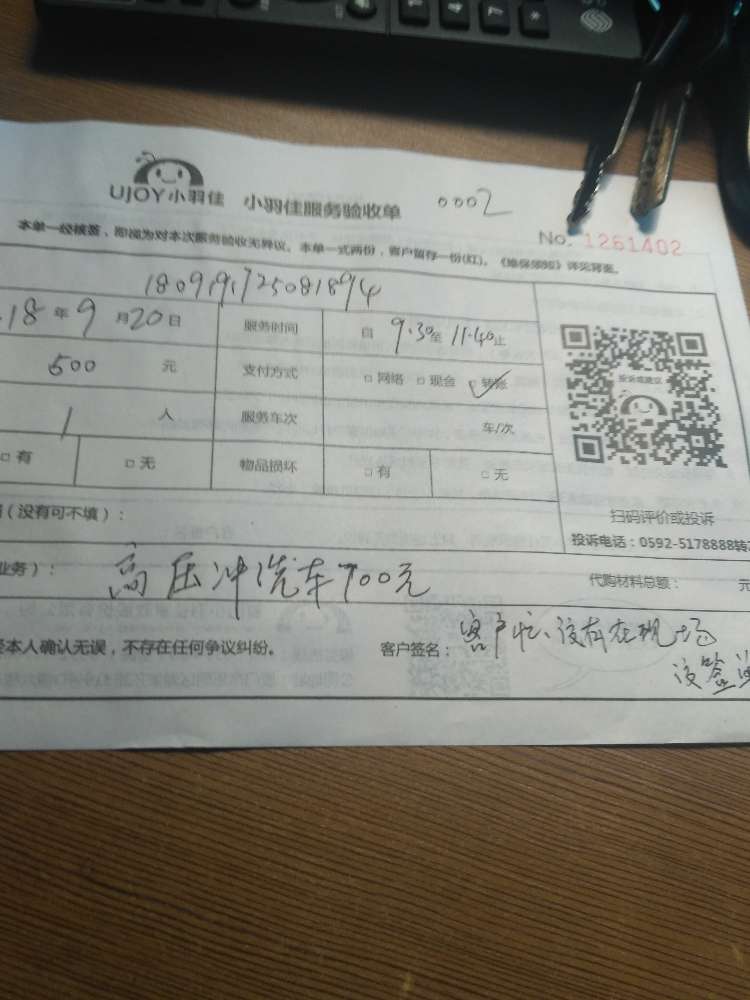 UJOY小羽佳 小羽佳服务验收单 0002
No. 1261402
本单一经核签，即视为对本次服务验收无异议。本单一式两份，客户留存一份(红)。《维保须知》详见背面。
1809191725081894
18 年 9 月 20 日 服务时间 自 9:30 至 11:40 止
500 元 支付方式 □ 网络 □ 现金 □ 转账
1 人 服务车次 车/次
□ 有 □ 无 物品损坏 □ 有 □ 无
投诉或建议
扫码评价或投诉
投诉电话：0592-5178888转
(没有可不填)：
业务)： 高压冲洗车700元 代购材料总额： 元
本人确认无误，不存在任何争议纠纷。 客户签名： 客户忙、没有在现场
没签